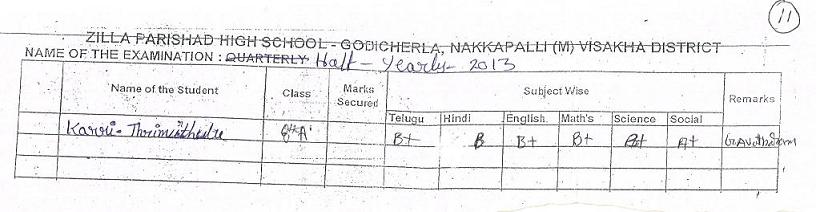 11
ZILLA PARISHAD HIGH SCHOOL - GODICHERLA, NAKKAPALLI (M) VISAKHA DISTRICT
NAME OF THE EXAMINATION : QUARTERLY Half - Yearly - 2013
Name of the Student Class Marks Secured Subject Wise Remarks
Telugu Hindi English. Math's Science Social
8th A B+ B B+ B+ A+